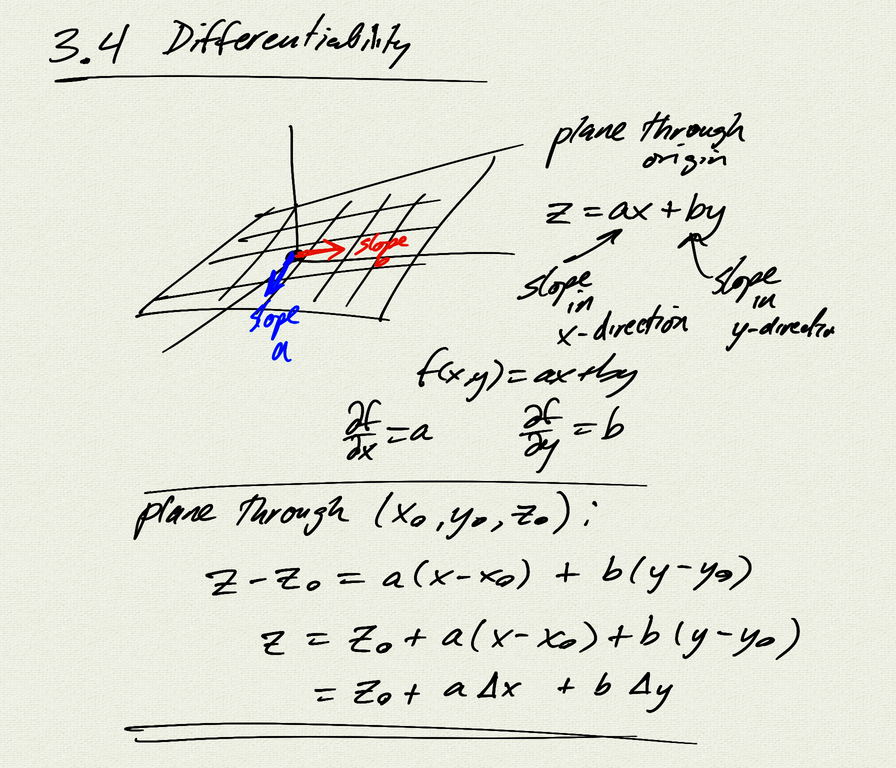 3.4 Differentiability
plane through
origin
z = ax + by
slope
b
slope
in
x-direction
slope
in
y-direction
slope
a
f(x,y) = ax + by
∂f/∂x = a   ∂f/∂y = b
plane through (x₀, y₀, z₀):
z - z₀ = a(x - x₀) + b(y - y₀)
z = z₀ + a(x - x₀) + b(y - y₀)
= z₀ + a Δx + b Δy